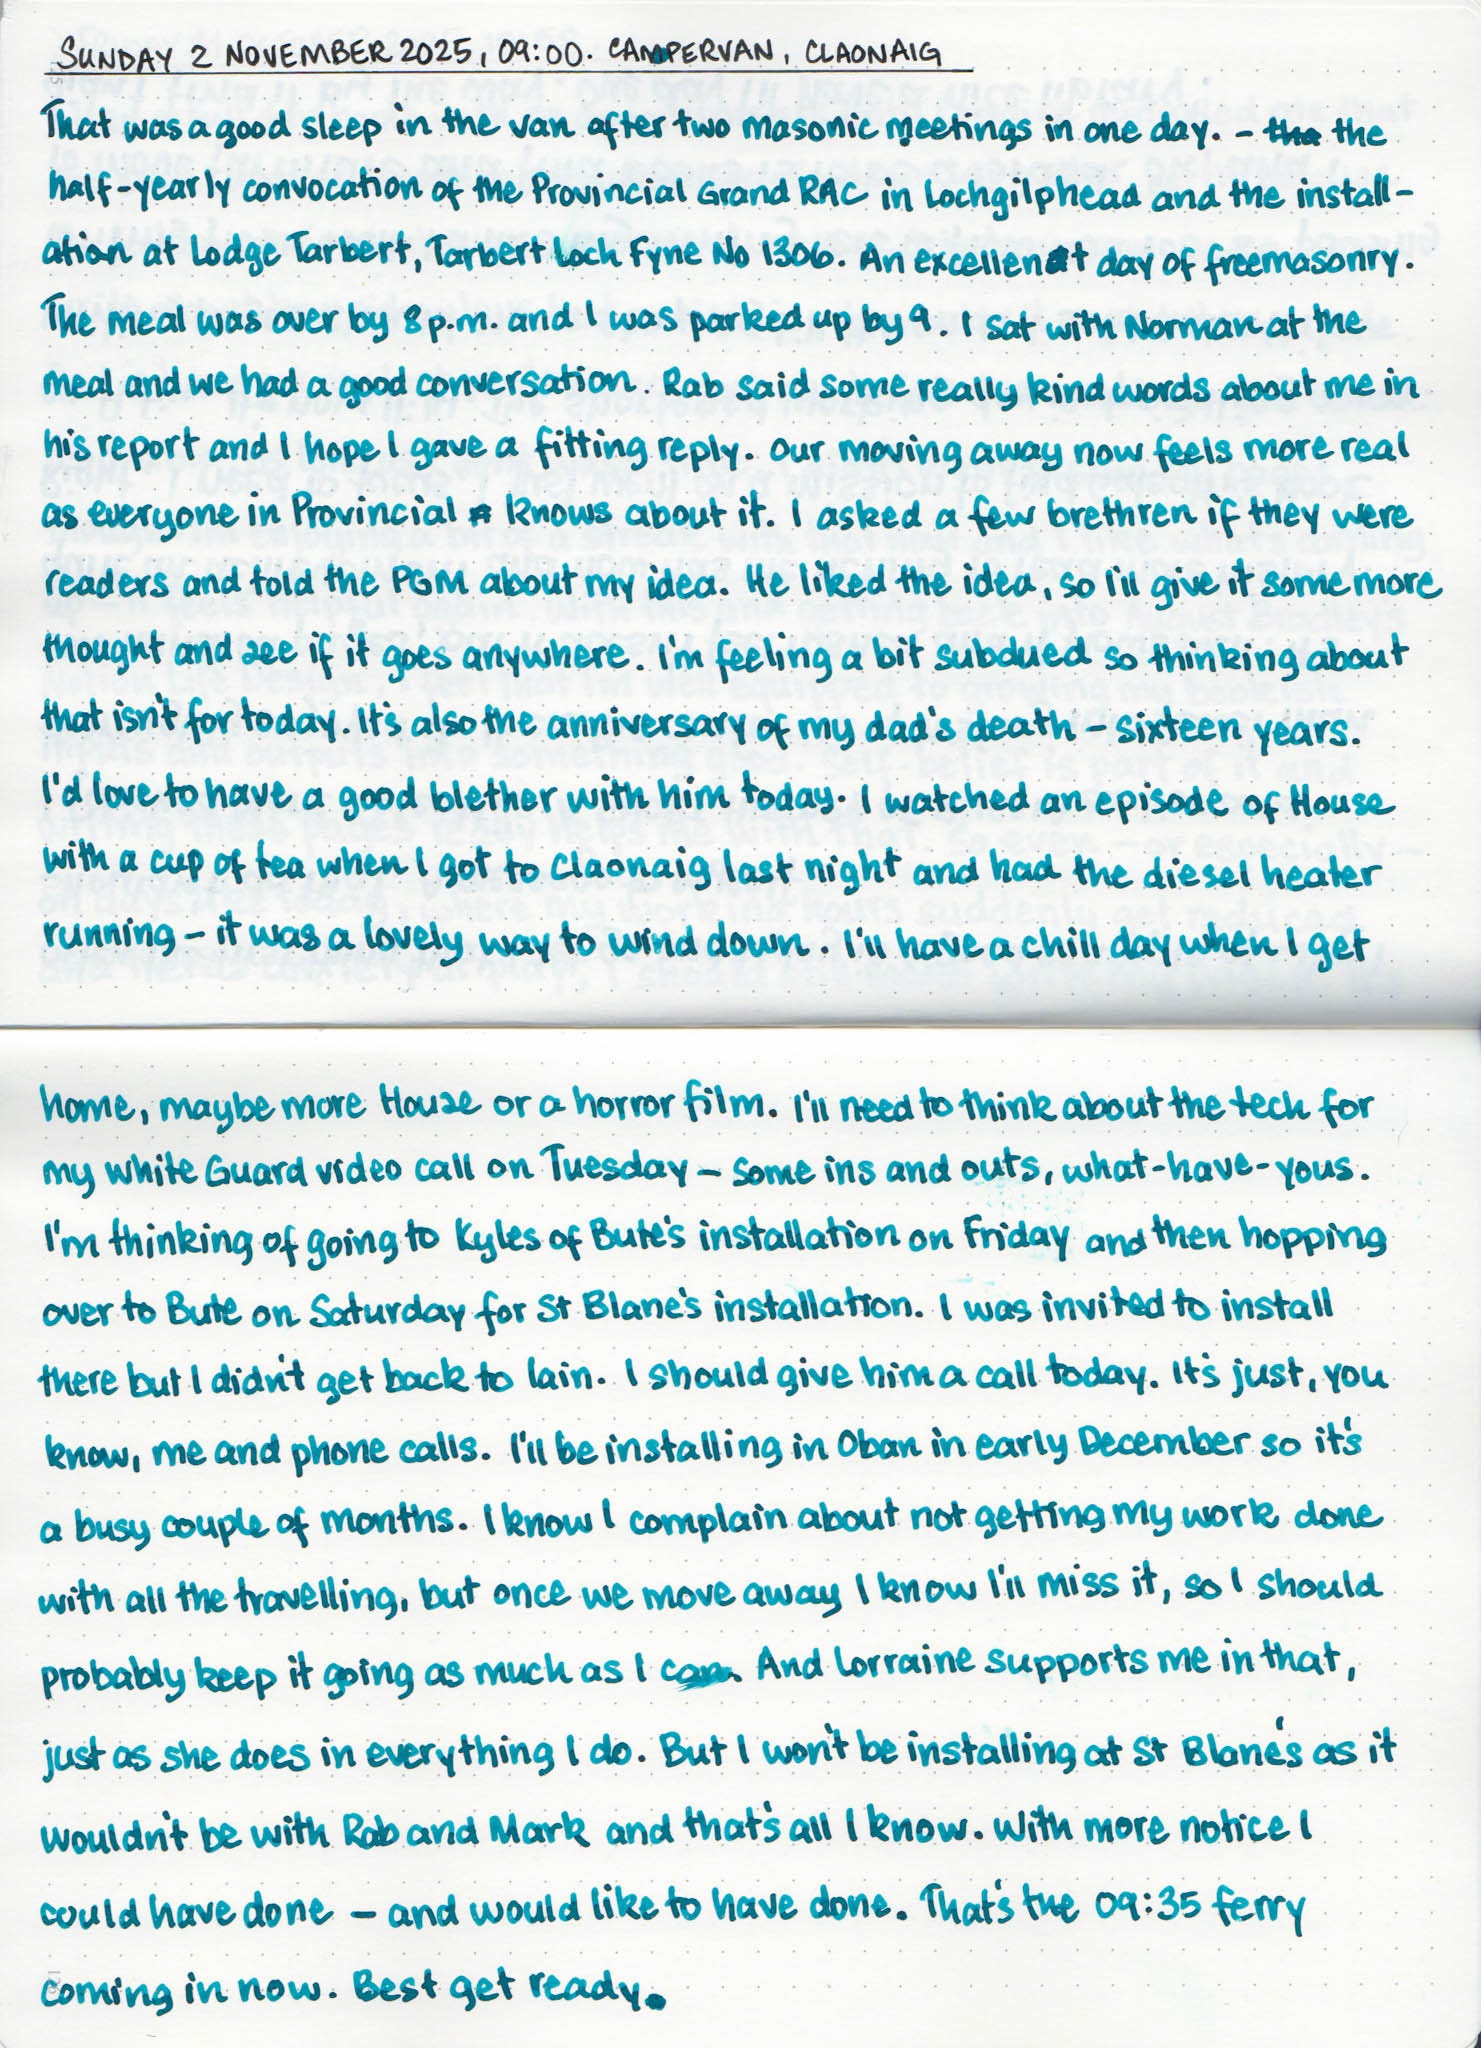 SUNDAY 2 NOVEMBER 2025, 09:00. CAMPERVAN, CLAONAIG
That was a good sleep in the van after two masonic meetings in one day. – the the
half-yearly convocation of the Provincial Grand RAC in Lochgilphead and the install-
ation at Lodge Tarbert, Tarbert Loch Fyne No 1306. An excellent day of freemasonry.
The meal was over by 8 p.m. and I was parked up by 9. I sat with Norman at the
meal and we had a good conversation. Rab said some really kind words about me in
his report and I hope I gave a fitting reply. Our moving away now feels more real
as everyone in Provincial knows about it. I asked a few brethren if they were
readers and told the PGM about my idea. He liked the idea, so I'll give it some more
thought and see if it goes anywhere. I'm feeling a bit subdued so thinking about
that isn't for today. It's also the anniversary of my dad's death – sixteen years.
I'd love to have a good blether with him today. I watched an episode of House
with a cup of tea when I got to Claonaig last night and had the diesel heater
running – it was a lovely way to wind down. I'll have a chill day when I get
home, maybe more House or a horror film. I'll need to think about the tech for
my White Guard video call on Tuesday – some ins and outs, what-have-yous.
I'm thinking of going to Kyles of Bute's installation on Friday and then hopping
over to Bute on Saturday for St Blane's installation. I was invited to install
there but I didn't get back to Iain. I should give him a call today. It's just, you
know, me and phone calls. I'll be installing in Oban in early December so it's
a busy couple of months. I know I complain about not getting my work done
with all the travelling, but once we move away I know I'll miss it, so I should
probably keep it going as much as I can. And Lorraine supports me in that,
just as she does in everything I do. But I won't be installing at St Blane's as it
wouldn't be with Rab and Mark and that's all I know. With more notice I
could have done – and would like to have done. That's the 09:35 ferry
coming in now. Best get ready.